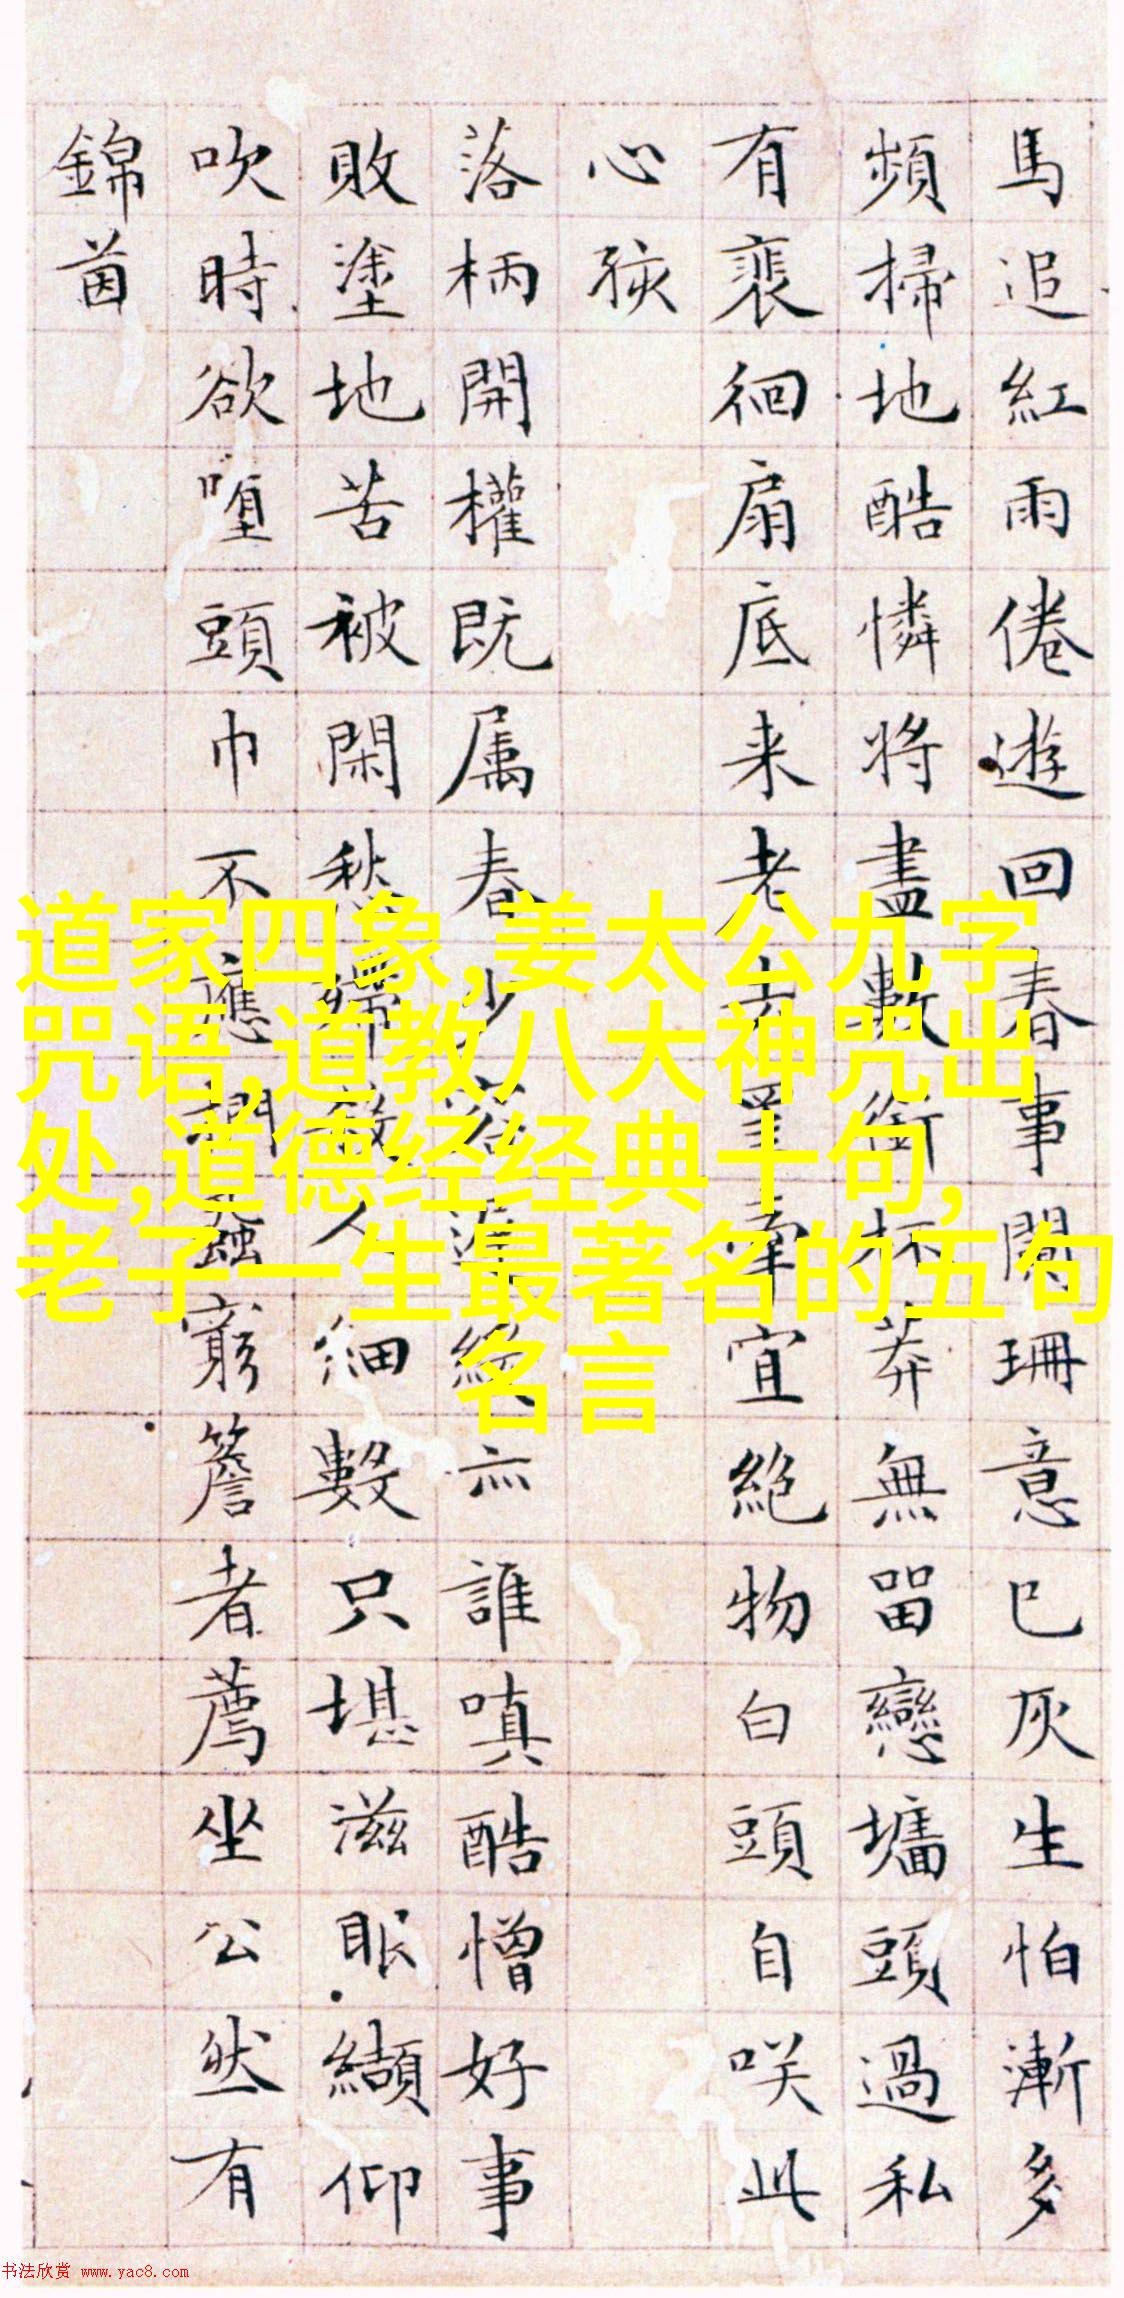 馬追紅雨倦遊回春事闌珊意已灰生怕漸多
頻掃地酷憐將盡數銜杯莽無留戀墻頭過私
有裵徊扇底来老去牽宜絶物白頭自咲此
心孩
落柄開權既属春少絕亦誰嗔酷憎好事
敗塗地苦被閑愁人細數只堪滋眼纈仰
吹時欲墮頭巾不應捫蝨窮簷者薦坐公然有
錦茵
道家四象,姜太公九字
咒语,道教八大神咒出
处,道德经经典十句,
老子一生最著名的五句
名言
书法欣赏 www.yac8.com